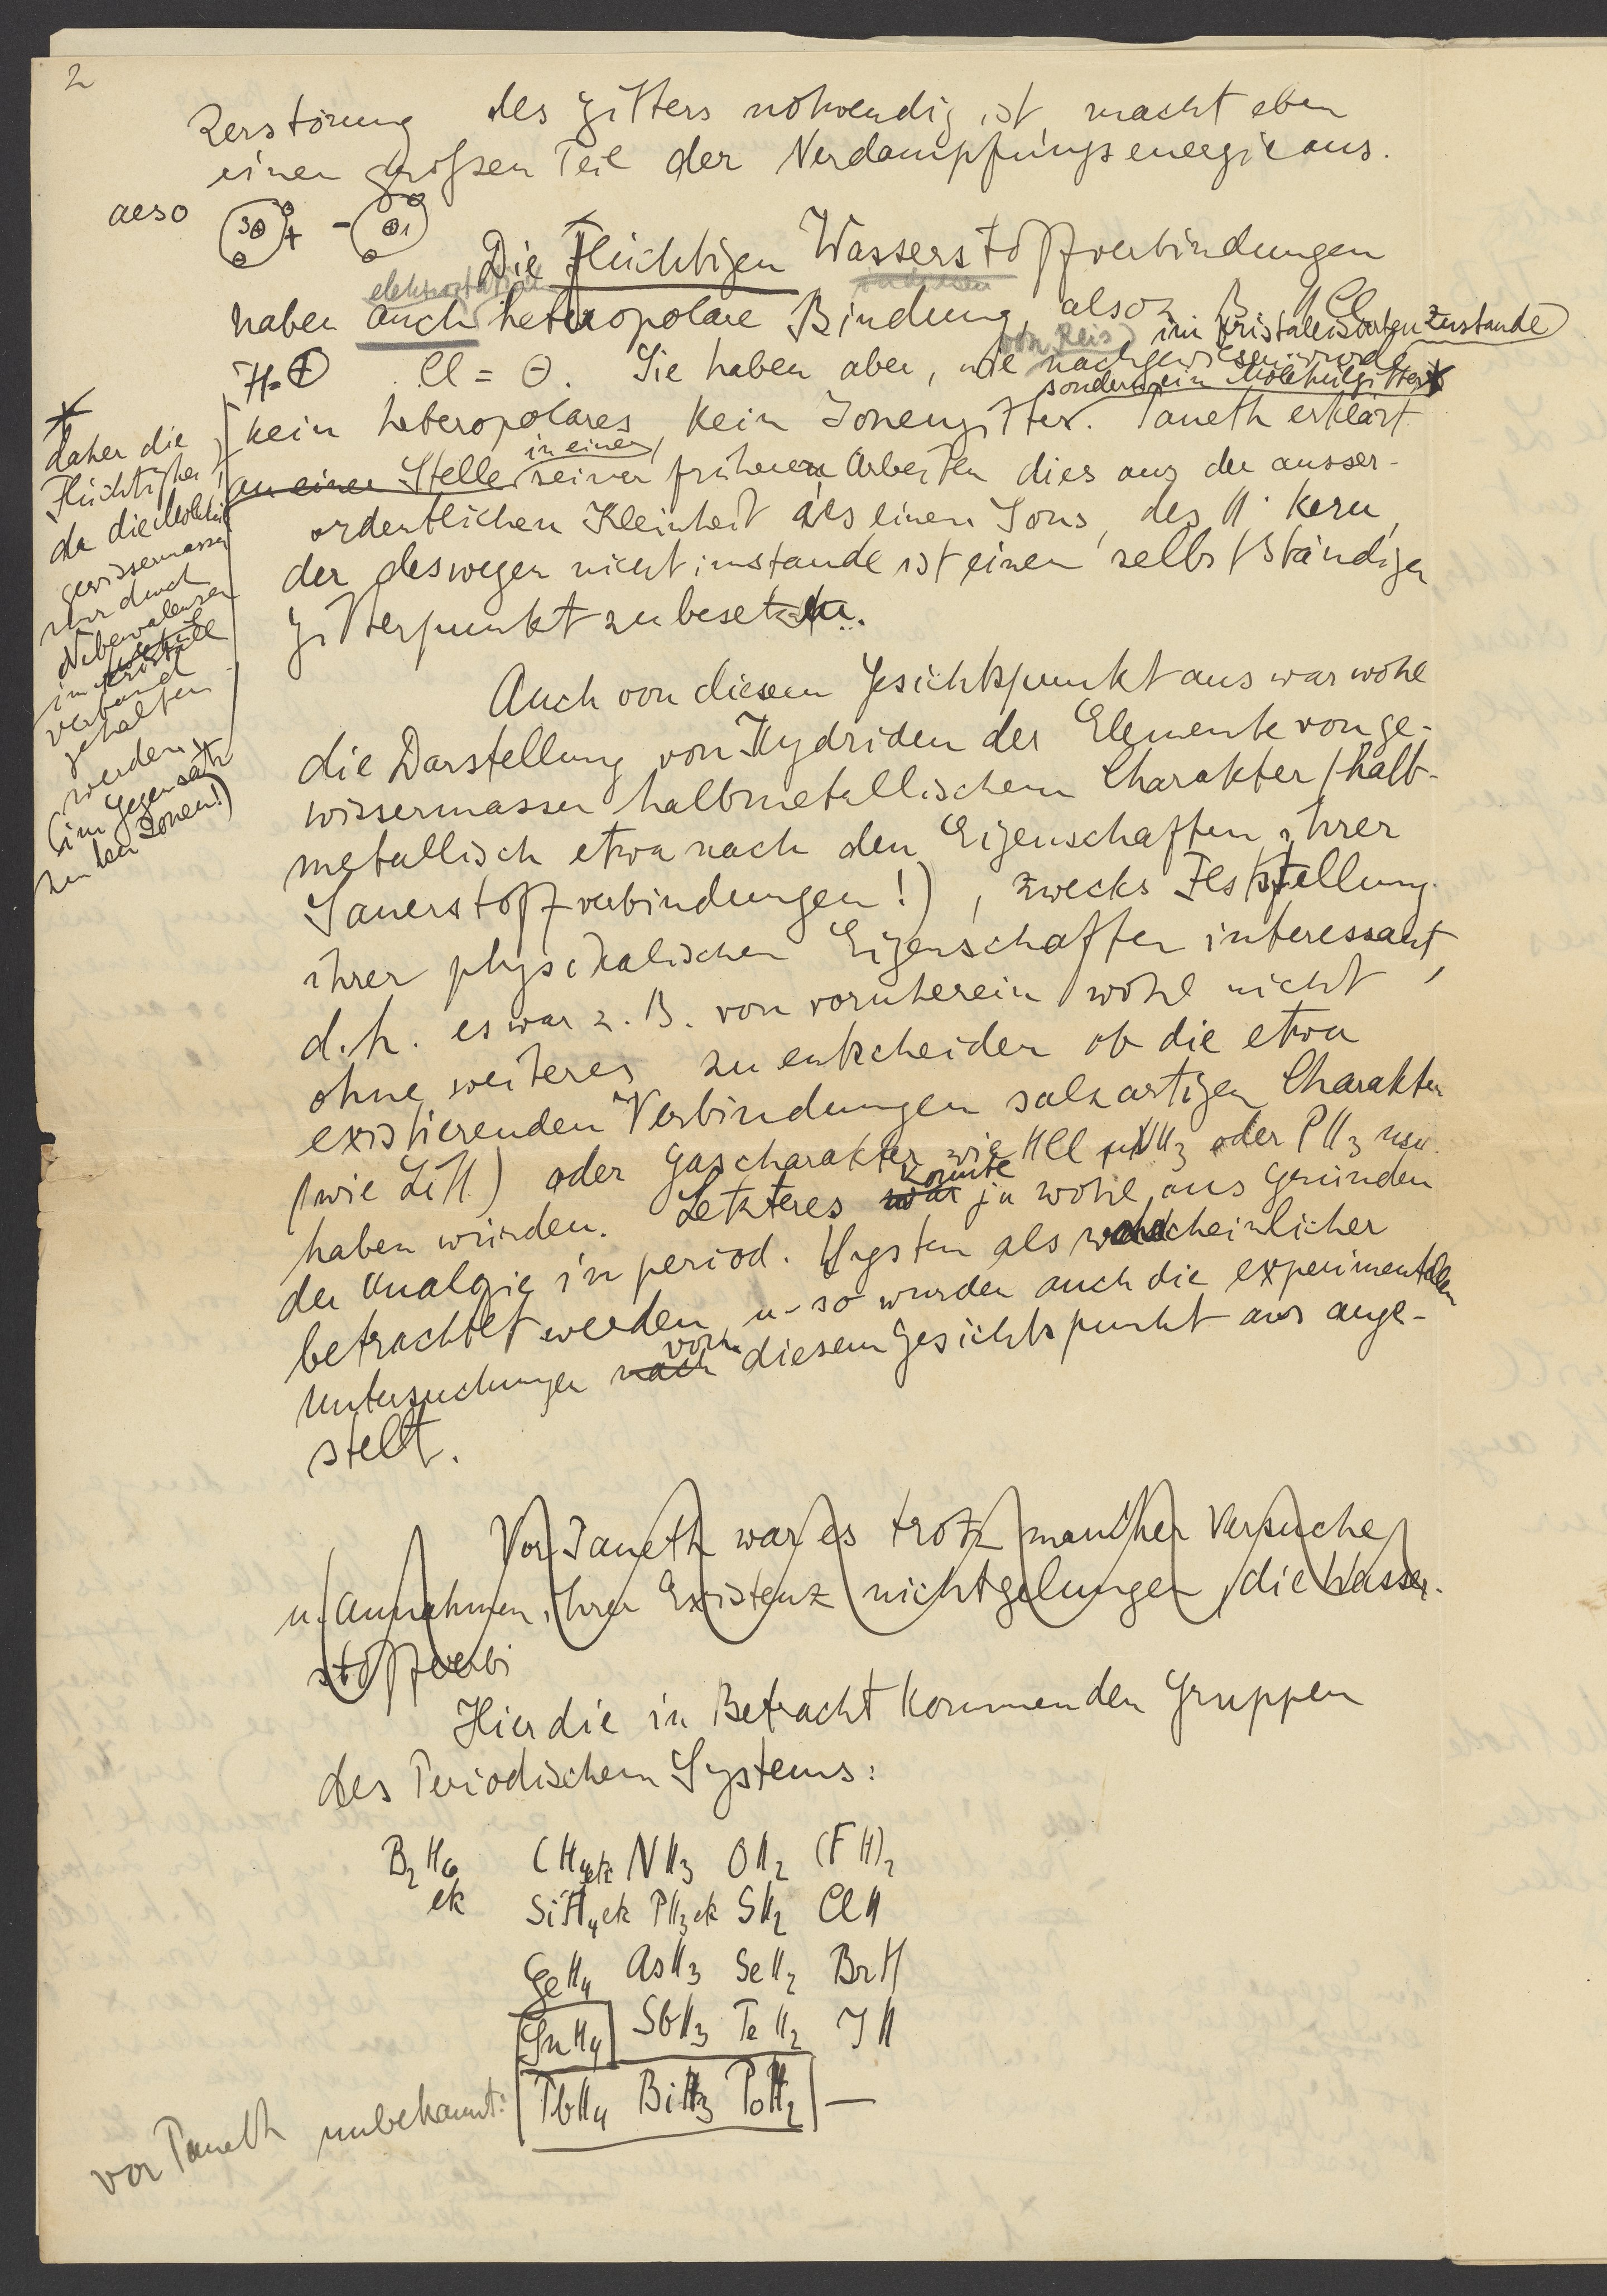 2
Zerstörung des Gitters notwendig ist, macht eben
einen großen Teil der Verdampfungsenergie aus.
also 3⊕ + - ⊕1
Die flüchtigen Wasserstoffverbindungen
elektrostatisch
haben auch heteropolare Bindung, also z. B. HCl
von Reis im kristallisierten Zustande
H=⊕ Cl = ⊖. Sie haben aber, wie nachgewiesen wurde
sondern ein Molekülgitter*
kein heteropolares, kein Ionengitter. Paneth erklärt
in einer
an einer Stelle seiner früheren Arbeiten dies aus der ausser-
ordentlichen Kleinheit des einen Ions, des H· Kern,
der deswegen nicht imstande ist einen selbstständigen
Gitterpunkt zu besetzen.
*
daher die
Flüchtigkeit,
da die Moleküle
gewissermassen
nur durch
Nebenvalenzen
im Kristall
verband
gehalten
werden
(im Gegensatz
zu den Ionen!)
Auch von diesem Gesichtspunkt aus war wohl
die Darstellung von Hydriden der Elemente von ge-
wissermassen halbmetallischem Charakter (halb-
metallisch etwa nach den Eigenschaften ihrer
Sauerstoffverbindungen!), zwecks Feststellung
ihrer physikalischen Eigenschaften interessant,
d.h. es war z. B. von vornherein wohl nicht
ohne weiteres zu entscheiden ob die etwa
existierenden Verbindungen salzartigen Charakter
(wie LiH) oder Gascharakter wie HCl NH3 oder PH3 usw.
haben würden. Letzteres war konnte ja wohl aus Gründen
der Analogie in period. System als wahrscheinlicher
betrachtet werden, u. so wurden auch die experimentellen
Untersuchungen nach von diesem Gesichtspunkt aus ange-
stellt.
Vor Paneth war es trotz mancher Versuche
u. Annahmen ihrer Existenz nicht gelungen, die Wasser-
stoffverbi
Hier die in Betracht kommenden Gruppen
des Periodischen Systems:
B2H6 CH4 etc NH3 OH2 (FH)2
etc SiH4 etc PH3 etc SH2 ClH
GeH4 AsH3 SeH2 BrH
SnH4 SbH3 TeH2 JH
vor Paneth unbekannt: PbH4 BiH3 PoH2 —